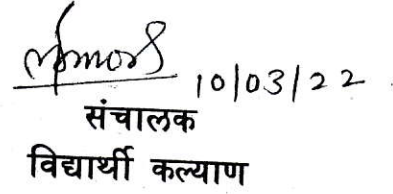 10/03/22
संचालक
विद्यार्थी कल्याण